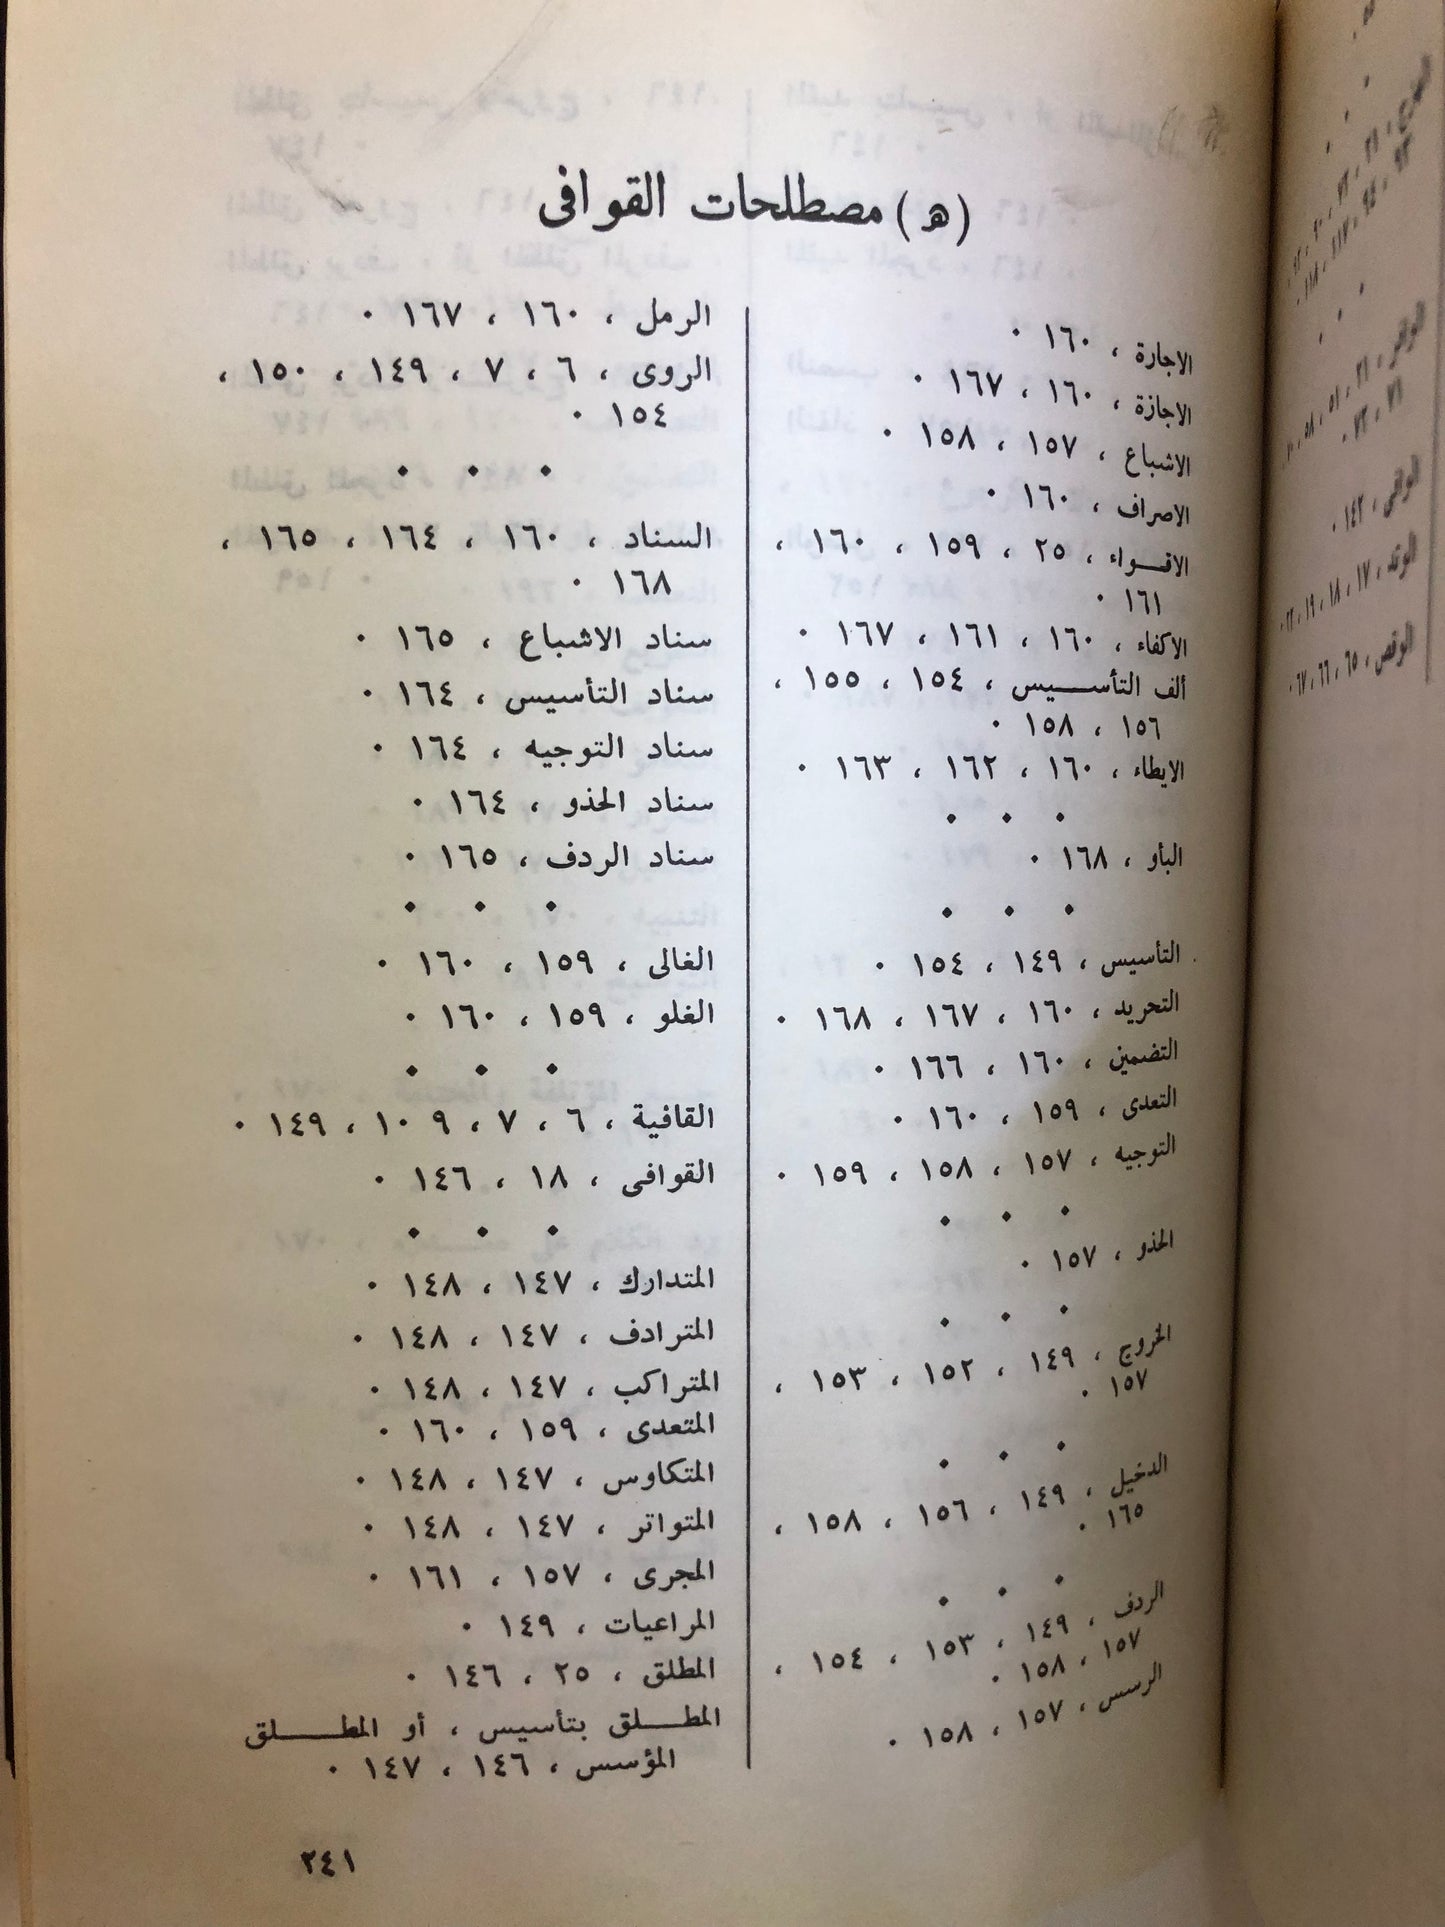 (ﻫ) مصطلحات القوافى
الاجارة ، ١٦٠ ٠
الاجازة ، ١٦٠ ، ١٦٧ ٠
الاشباع ، ١٥٧ ، ١٥٨ ٠
الاصراف ، ١٦٠ ٠
الاقواء ، ٢٥ ، ١٥٩ ، ١٦٠ ،
١٦١ ٠
الاكفاء ، ١٦٠ ، ١٦١ ، ١٦٧ ٠
ألف التأسيس ، ١٥٤ ، ١٥٥ ،
١٥٦ ، ١٥٨ ٠
الايطاء ، ١٦٠ ، ١٦٢ ، ١٦٣ ٠
• • •
البأو ، ١٦٨ ٠
• • •
التأسيس ، ١٤٩ ، ١٥٤ ٠
التحريد ، ١٦٠ ، ١٦٧ ، ١٦٨ ٠
التضمين ، ١٦٠ ، ١٦٦ ٠
التعدى ، ١٥٩ ، ١٦٠ ٠
التوجيه ، ١٥٧ ، ١٥٨ ، ١٥٩ ٠
• • •
الحذو ، ١٥٧ ٠
• • •
الخروج ، ١٤٩ ، ١٥٢ ، ١٥٣ ،
١٥٧ ٠
• • •
الدخيل ، ١٤٩ ، ١٥٦ ، ١٥٨ ،
١٦٥ ٠
• • •
الردف ، ١٤٩ ، ١٥٣ ، ١٥٤ ،
١٥٧ ، ١٥٨ ٠
الرسس ، ١٥٧ ، ١٥٨ ٠
الرمل ، ١٦٠ ، ١٦٧ ٠
الروى ، ٦ ، ٧ ، ١٤٩ ، ١٥٠ ،
١٥٤ ٠
• • •
السناد ، ١٦٠ ، ١٦٤ ، ١٦٥ ،
١٦٨ ٠
سناد الاشباع ، ١٦٥ ٠
سناد التأسيس ، ١٦٤ ٠
سناد التوجيه ، ١٦٤ ٠
سناد الحذو ، ١٦٤ ٠
سناد الردف ، ١٦٥ ٠
• • •
الغالى ، ١٥٩ ، ١٦٠ ٠
الغلو ، ١٥٩ ، ١٦٠ ٠
• • •
القافية ، ٦ ، ٧ ، ٩ ١٠ ، ١٤٩ ٠
القوافى ، ١٨ ، ١٤٦ ٠
• • •
المتدارك ، ١٤٧ ، ١٤٨ ٠
المترادف ، ١٤٧ ، ١٤٨ ٠
المتراكب ، ١٤٧ ، ١٤٨ ٠
المتعدى ، ١٥٩ ، ١٦٠ ٠
المتكاوس ، ١٤٧ ، ١٤٨ ٠
المتواتر ، ١٤٧ ، ١٤٨ ٠
المجرى ، ١٥٧ ، ١٦١ ٠
المراعيات ، ١٤٩ ٠
المطلق ، ٢٥ ، ١٤٦ ٠
المطلق بتأسيس ، أو المطلق
المؤسس ، ١٤٦ ، ١٤٧ ٠
٢٤١
الوافى ، ١٤٢ ٠
الوقص ، ٦٥ ، ٦٦ ، ٦٧ ٠